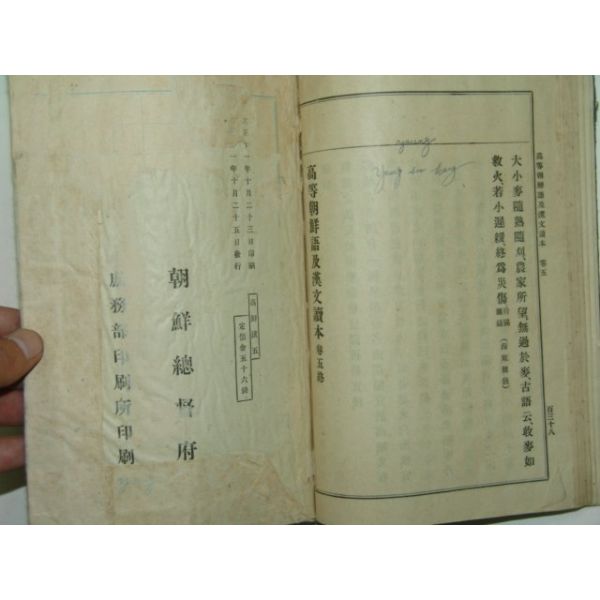 高等朝鮮語及漢文讀本 卷五
百三十八
大小麥隨熟隨刈、農家所望、無過於麥、古語云、收麥如
救火若小遲緩、終爲災傷
young
高等朝鮮語及漢文讀本 卷五終
一年十月二十三日印刷
一年十月二十五日發行
高鮮漢五
定價金五十六錢
朝鮮總督府
庶務部印刷所印刷